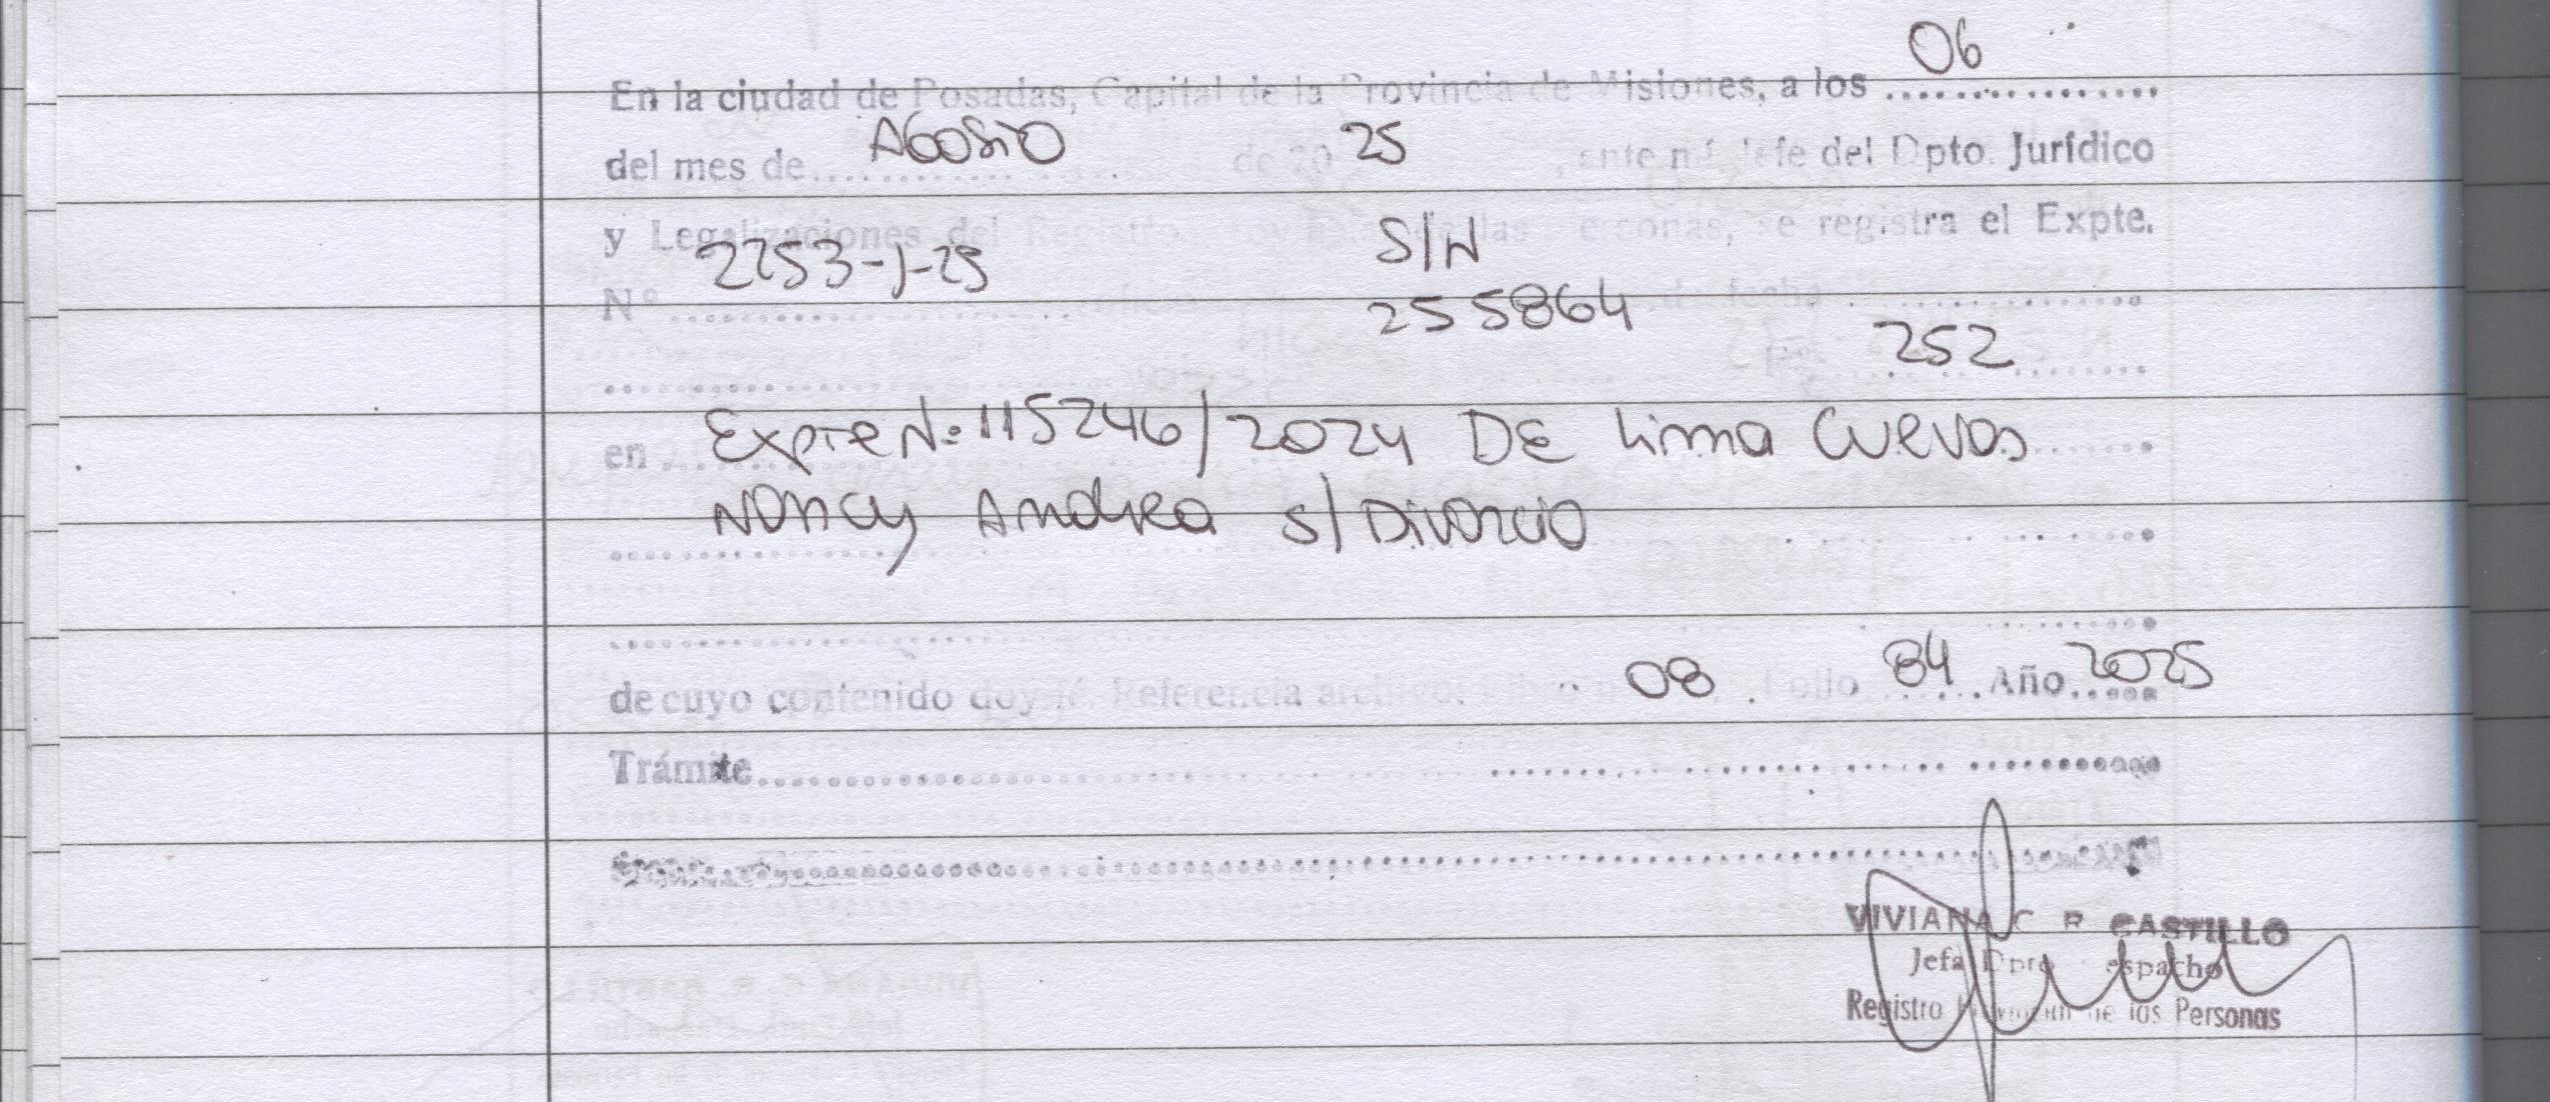 06
En la ciudad de Posadas, Capital de la Provincia de Misiones, a los ................
del mes de Agosto de 20 25, ante mí Jefe del Dpto. Jurídico
y Legalizaciones del las Personas, se registra el Expte.
Nº 2253-J-25 S/N fecha
255864 252
en Expte N: 115246/2024 DE Lima Cuevas
Nancy Andrea S/Divorcio
de cuyo contenido doy fé. Referencia 08 Folio 84 Año 2025
Trámite
VIVIANA C. R. CASTILLO
Jefa Dpto Despacho
Registro Provincial de las Personas